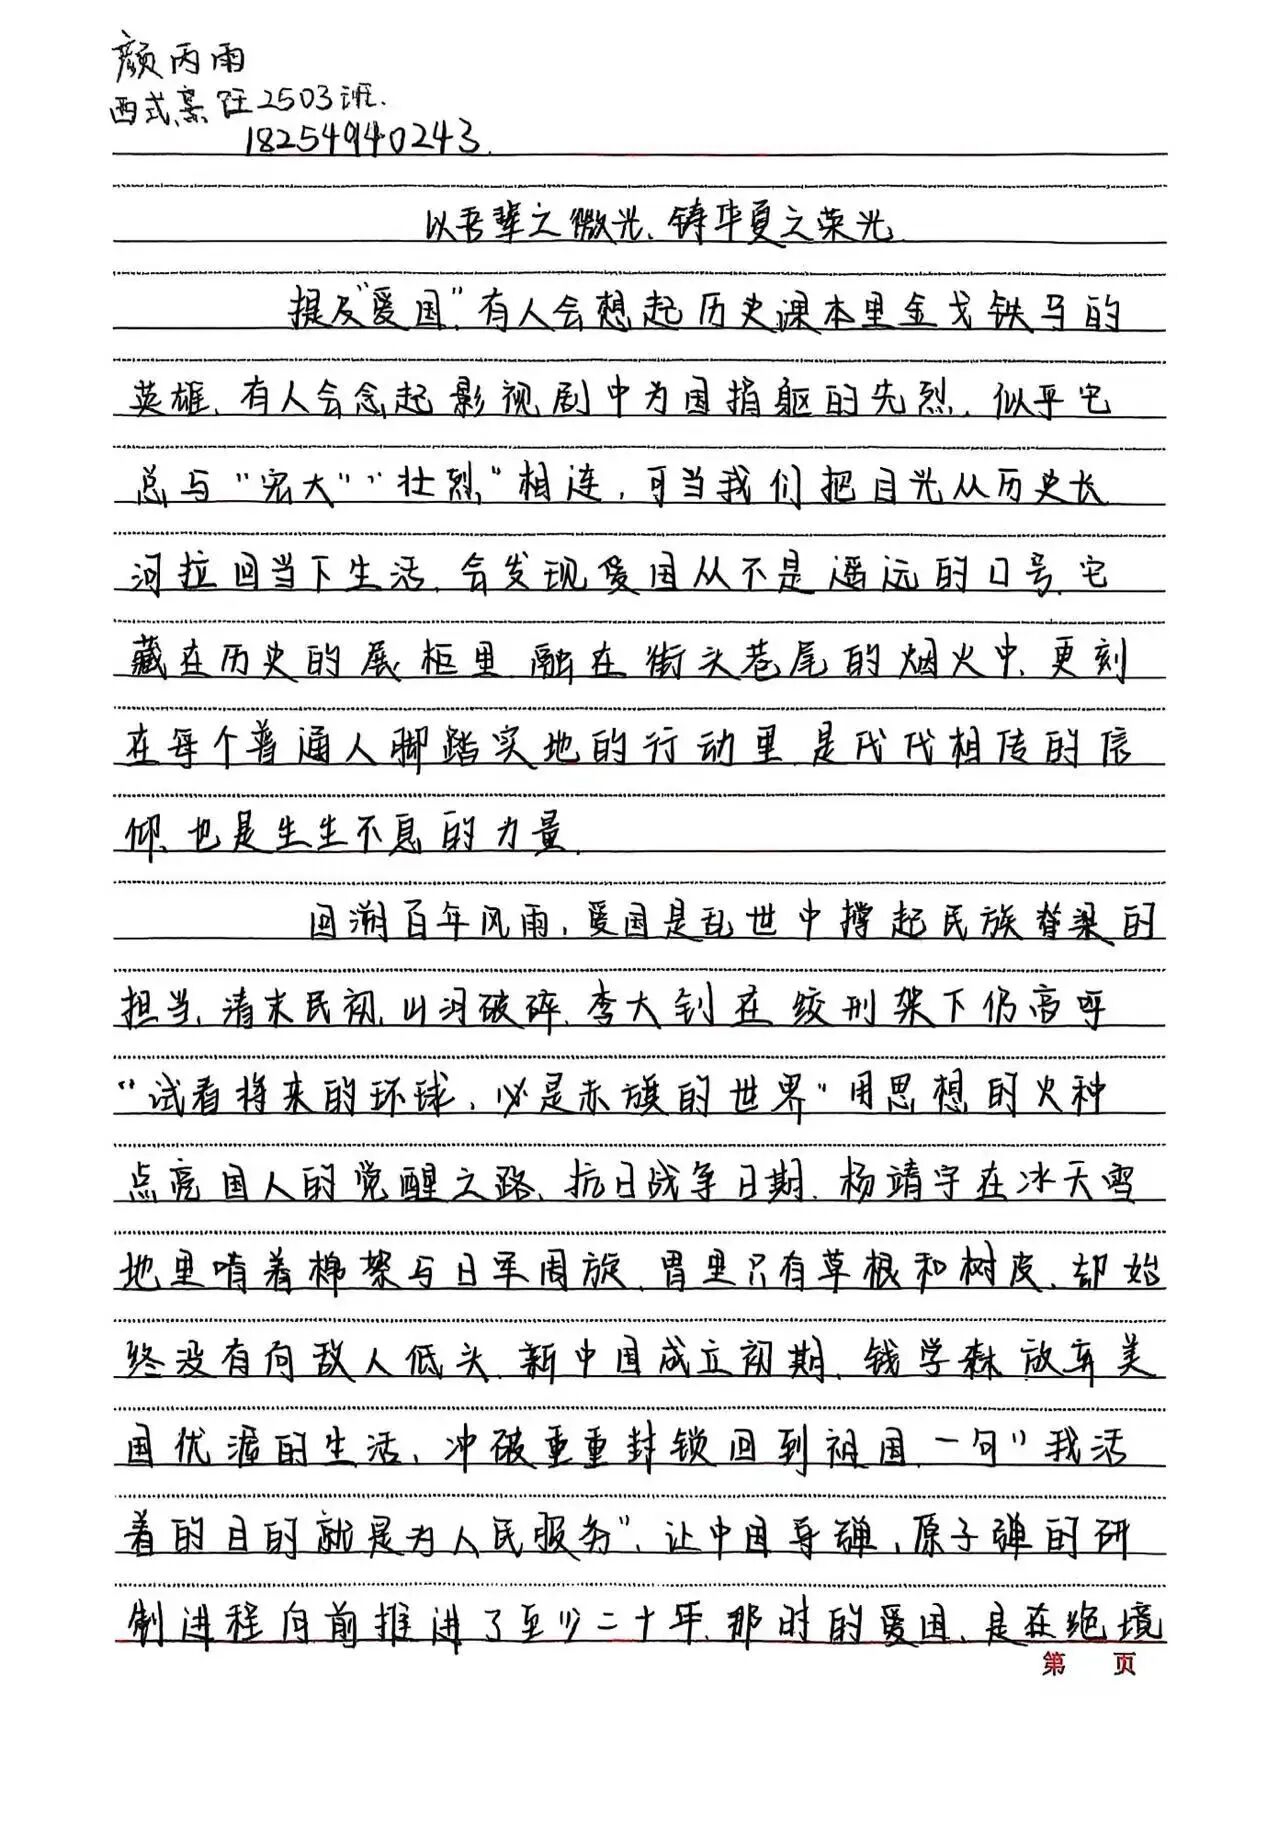 颜丙雨
西式烹饪2503班.
18254940243.
以吾辈之微光、铸华夏之荣光
提及“爱国”,有人会想起历史课本里金戈铁马的
英雄、有人会念起影视剧中为国捐躯的先烈、似乎它
总与“宏大”“壮烈”相连，可当我们把目光从历史长
河拉回当下生活、会发现爱国从不是遥远的口号,它
藏在历史的展柜里,融在街头巷尾的烟火中、更刻
在每个普通人脚踏实地的行动里、是代代相传的信
仰、也是生生不息的力量.
回溯百年风雨，爱国是乱世中撑起民族脊梁的
担当、清末民初、山河破碎、李大钊在绞刑架下仍高呼
“试看将来的环球、必是赤旗的世界”用思想的火种
点亮国人的觉醒之路、抗日战争日期、杨靖宇在冰天雪
地里啃着棉絮与日军周旋、胃里只有草根和树皮、却始
终没有向敌人低头.新中国成立初期、钱学森放弃美
国优渥的生活、冲破重重封锁回到祖国、一句“我活
着的目的就是为人民服务”、让中国导弹、原子弹的研
制进程向前推进了至少二十年、那时的爱国、是在绝境
第 页